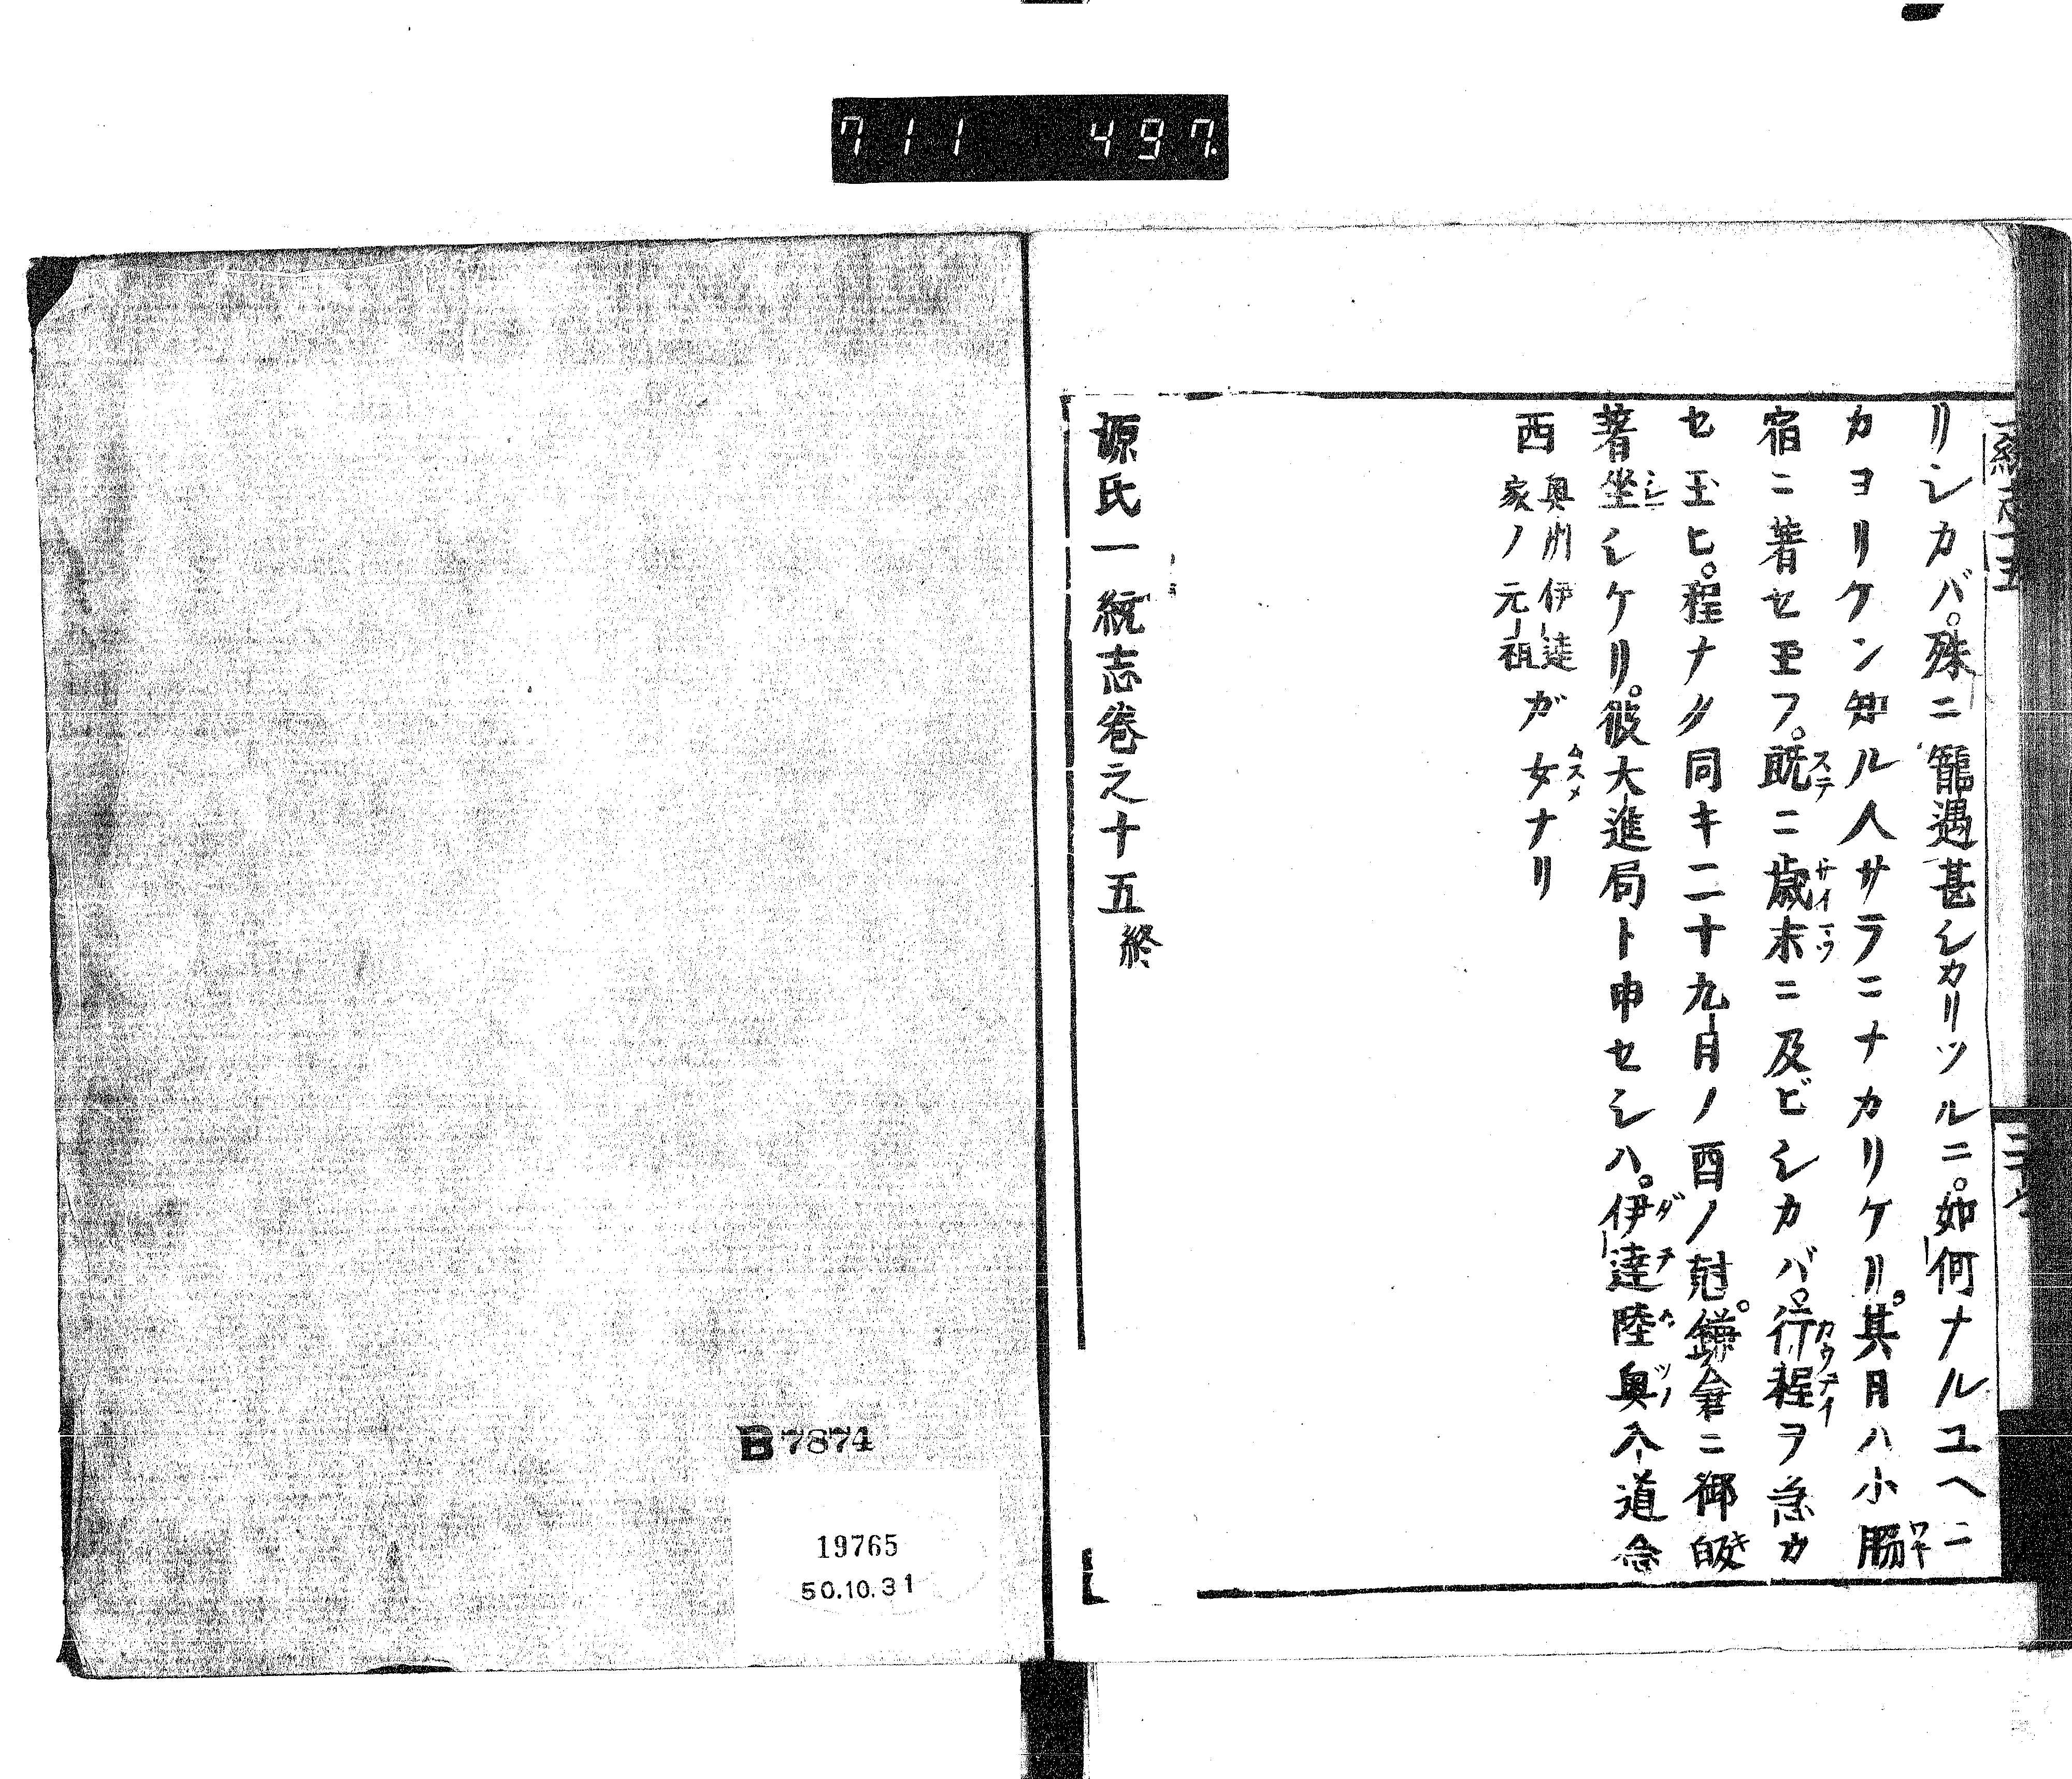 711 497.
リシカバ。殊ニ寵遇甚シカリツルニ。如何ナルユヘニ
カヨリケン知ル人サラニナカリケリ。其月ハ小脇
宿ニ著セ玉フ。既ニ歳末ニ及ビシカバ。行程ヲ急カ
セ玉ヒ。程ナク同キ二十九月ノ酉ノ尅。鎌倉ニ御皈
著坐シケリ。彼大進局ト申セシハ。伊達陸奥入道念
西 奥州伊達家ノ元祖 ガ女ナリ
源氏一統志巻之十五終
B7874
19765
50.10.31